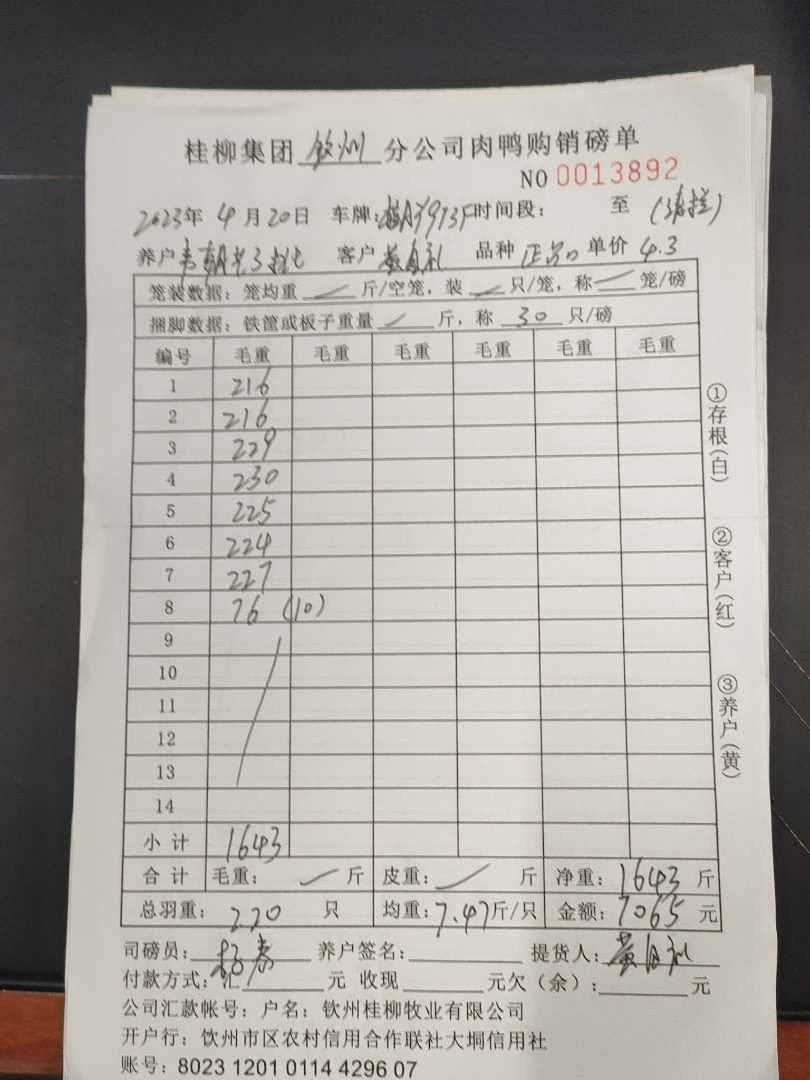 桂柳集团 钦州 分公司肉鸭购销磅单
NO 0013892
2023年 4月 20日 车牌: 时间段: 至
养户 客户 黄自礼 品种 正品 单价 4.3
笼装数据：笼均重 斤/空笼，装 只/笼，称 笼/磅
捆脚数据：铁筐或板子重量 斤，称 30 只/磅
编号 毛重 毛重 毛重 毛重 毛重 毛重
1 216
2 216
3 229
4 230
5 225
6 224
7 227
8 76 (10)
9
10
11
12
13
14
小计 1643
合计 毛重： 斤 皮重： 斤 净重：1643 斤
总羽重：220 只 均重：7.47斤/只 金额：7065 元
司磅员： 养户签名： 提货人：黄自礼
付款方式：汇 元 收现 元欠（余）： 元
公司汇款帐号：户名：钦州桂柳牧业有限公司
开户行：钦州市区农村信用合作联社大垌信用社
账号：8023 1201 0114 4296 07
①存根(白)
②客户(红)
③养户(黄)